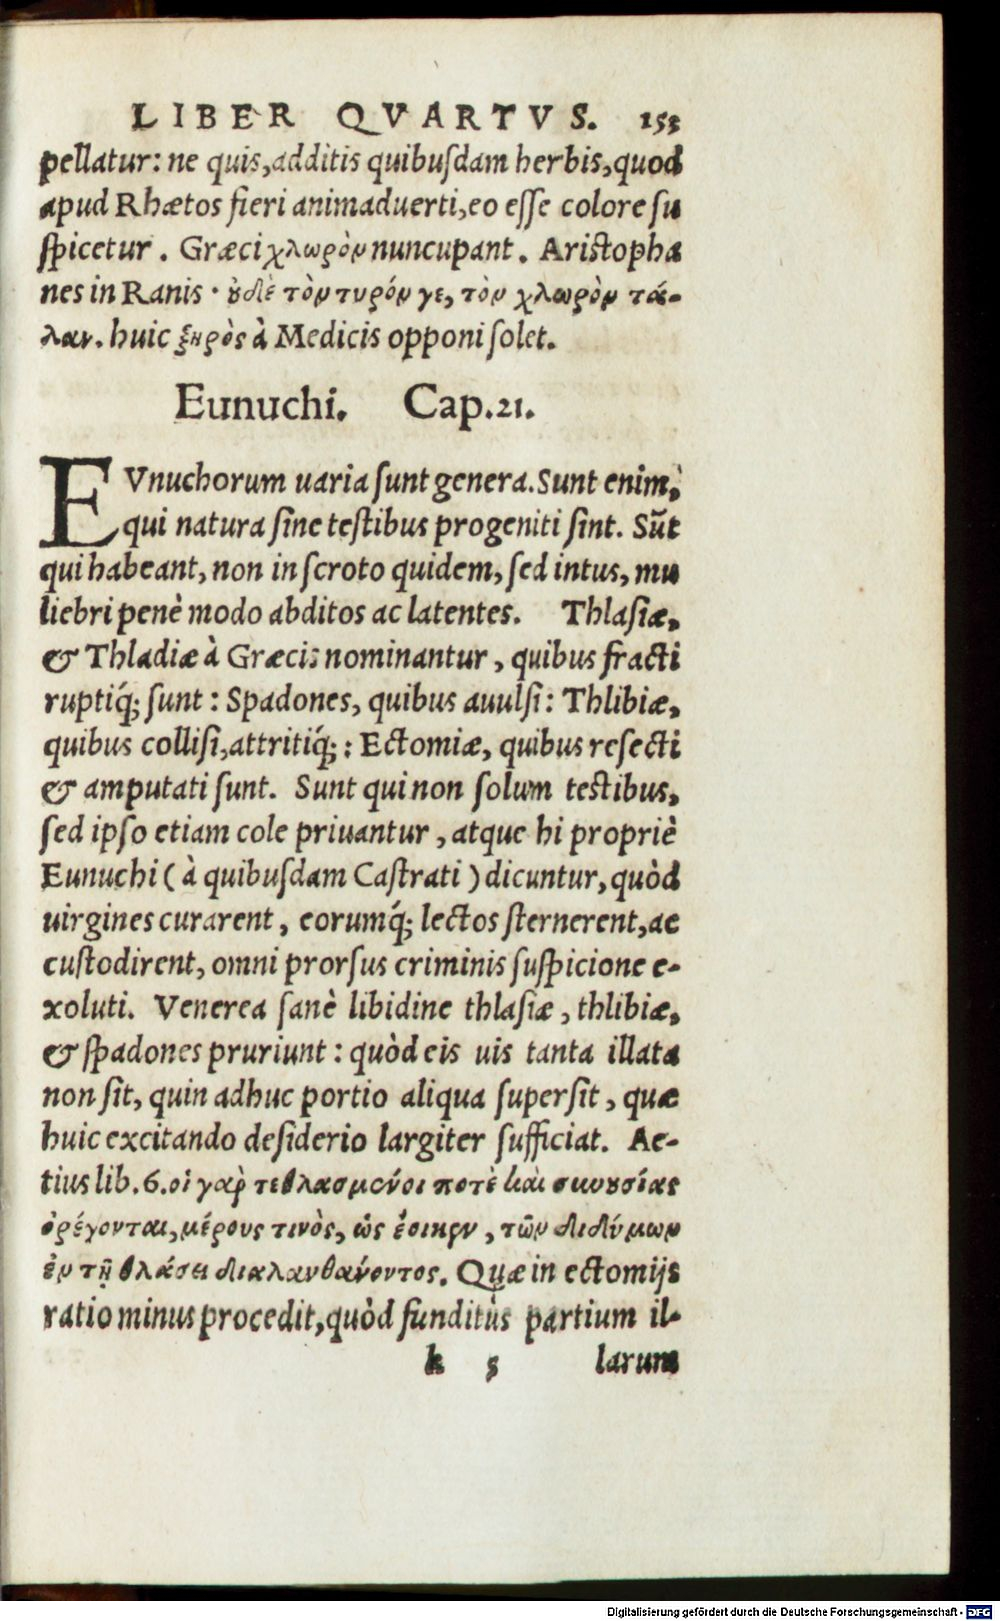 LIBER QVARTVS. 153
pellatur: ne quis, additis quibuſdam herbis, quod
apud Rhætos fieri animaduerti, eo eſſe colore ſu
ſpicetur. Græci χλωρὸν nuncupant. Ariſtopha
nes in Ranis· ȣδὲ τὸν τυρόν γε, τὸν χλωρὸν τά-
λαν. huic ξηρὸς à Medicis opponi ſolet.
Eunuchi. Cap. 21.
EVnuchorum uaria ſunt genera. Sunt enim,
qui natura ſine teſtibus progeniti ſint. Sūt
qui habeant, non in ſcroto quidem, ſed intus, mu
liebri penè modo abditos ac latentes. Thlaſiæ,
& Thladiæ à Græcis nominantur, quibus fracti
ruptiq́; ſunt: Spadones, quibus auulſi: Thlibiæ,
quibus colliſi, attritiq́;: Ectomiæ, quibus reſecti
& amputati ſunt. Sunt qui non ſolum teſtibus,
ſed ipſo etiam cole priuantur, atque hi propriè
Eunuchi (à quibuſdam Caſtrati) dicuntur, quòd
uirgines curarent, eorumq́; lectos ſternerent, ac
cuſtodirent, omni prorſus criminis ſuſpicione e-
xoluti. Venerea ſanè libidine thlaſiæ, thlibiæ,
& ſpadones pruriunt: quòd eis uis tanta illata
non ſit, quin adhuc portio aliqua ſuperſit, quæ
huic excitando deſiderio largiter ſufficiat. Ae-
tius lib. 6. οἱ γαρ̀ τεθλασμένοι ποτὲ καὶ σωȣσίας
ὀρέγονται, μέρους τινὸς, ὡς ἔοικεν, τῶν διδύμων
ἐν τῇ θλάσει διαλανθάνοντος. Quæ in ectomijs
ratio minus procedit, quòd funditùs partium il-
k 5 larum
Digitalisierung gefördert durch die Deutsche Forschungsgemeinschaft - DFG